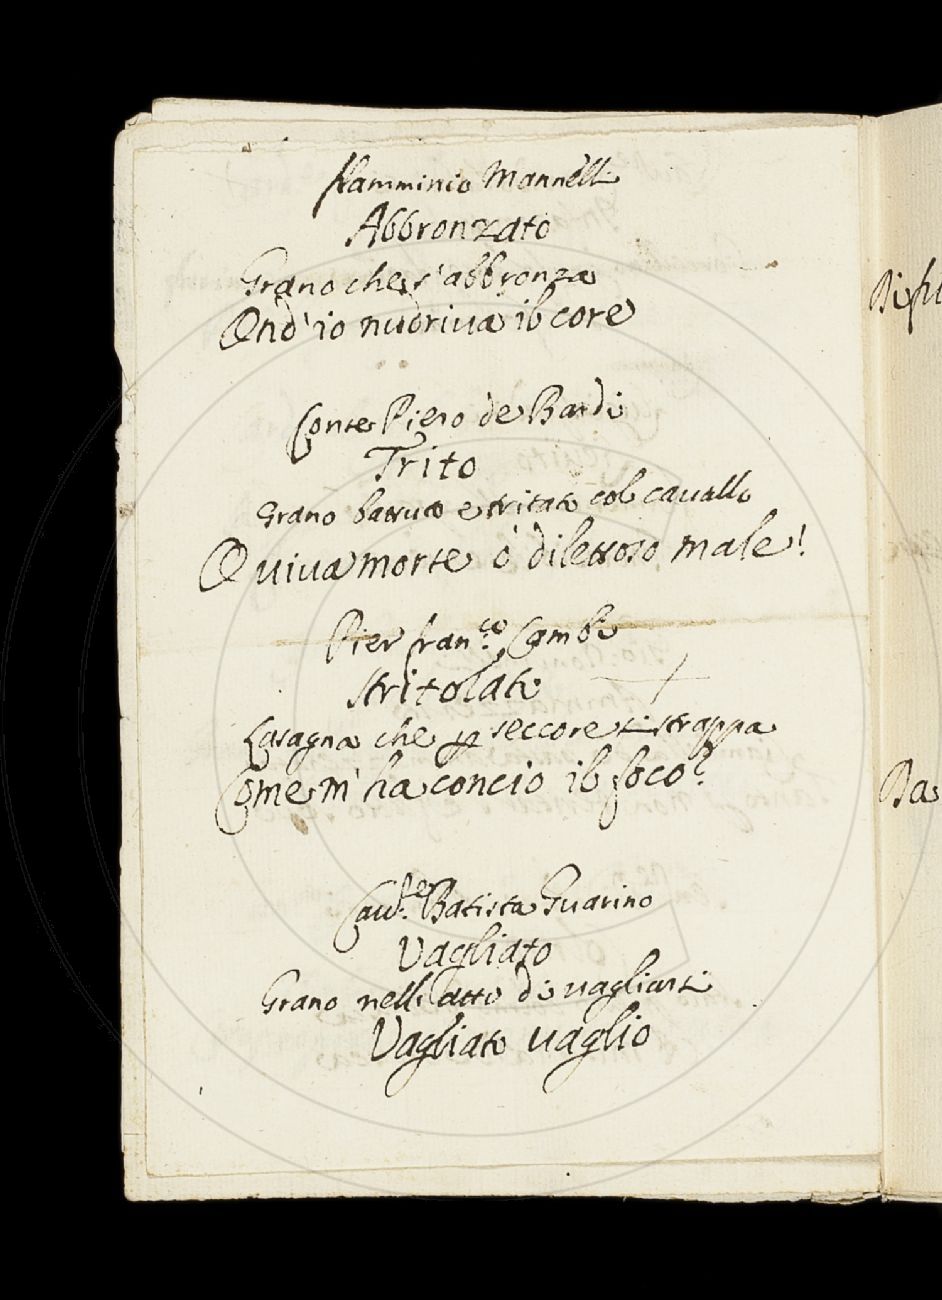 Flamminio Mannelli
Abbronzato
Grano che s'abbronza
Ond'io nudriva il core
Conte Piero de Bardi
Trito
Grano battuto e tritato col cavallo
O viva morte ò dilettoso male!
Pier fran.co Cambi
Stritolato
Lasagna che ꝑ seccore si strappa
Come m'ha concio il foco?
Cau.re Batista Guarino
Vagliato
Grano nell'atto di vagliarsi
Vagliato vaglio
Bifu
Ba